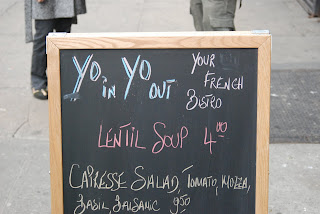 Yo in Yo out
Your French Bistro
Lentil Soup 4.00
Caprese Salad, Tomato, Mozza,
Basil Balsamic 9.50